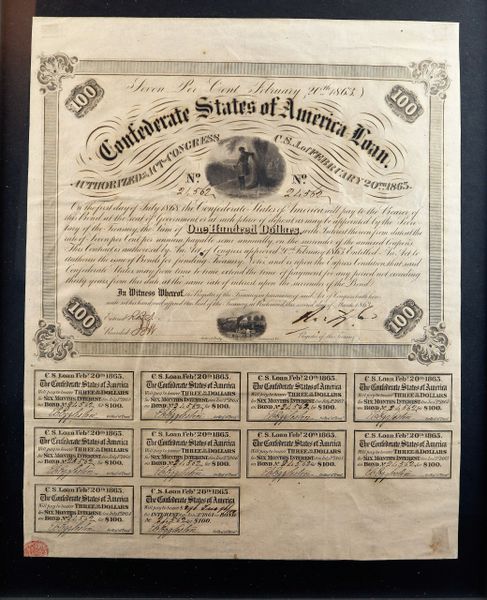 100 100
Seven Per Cent February 20th 1863
Confederate States of America Loan.
AUTHORIZED BY ACT OF CONGRESS C.S.A. of FEBRUARY 20TH 1863.
No No
24,562 24,562
On the first day of July 1868 the Confederate States of America will pay to the Bearer of
this Bond at the seat of Government or at such place of deposit as may be appointed by the Secre-
tary of the Treasury, the Sum of One Hundred Dollars, with Interest thereon from date at the
rate of Seven per Cent per annum, payable semi annually, on the surrender of the annexed Coupons.
This Contract is authorized by An Act of Congress approved 20th February 1863 Entitled An Act to
authorize the issue of Bonds for funding Treasury Notes and is upon the express Condition that said
Confederate States may from time to time extend the time of payment for any period not exceeding
thirty years from this date, at the same rate of interest upon the surrender of this Bond.
In Witness Whereof, the Register of the Treasury in pursuance of said Act of Congress hath here-
unto set his hand and affixed the Seal of the Treasury at Richmond
Entered
Recorded
Register of the Treasury
100 100
C. S. Loan Feby. 20th 1863.
The Confederate States of America
Will pay to bearer THREE DOLLARS
for SIX MONTHS INTEREST
on BOND No 24,562 for $100.
C. S. Loan Feby. 20th 1863.
The Confederate States of America
Will pay to bearer THREE DOLLARS
for SIX MONTHS INTEREST
on BOND No 24,562 for $100.
C. S. Loan Feby. 20th 1863.
The Confederate States of America
Will pay to bearer THREE DOLLARS
for SIX MONTHS INTEREST
on BOND No 24,562 for $100.
C. S. Loan Feby. 20th 1863.
The Confederate States of America
Will pay to bearer THREE DOLLARS
for SIX MONTHS INTEREST
on BOND No 24,562 for $100.
C. S. Loan Feby. 20th 1863.
The Confederate States of America
Will pay to bearer THREE DOLLARS
for SIX MONTHS INTEREST
on BOND No 24,562 for $100.
C. S. Loan Feby. 20th 1863.
The Confederate States of America
Will pay to bearer THREE DOLLARS
for SIX MONTHS INTEREST
on BOND No 24,562 for $100.
C. S. Loan Feby. 20th 1863.
The Confederate States of America
Will pay to bearer THREE DOLLARS
for SIX MONTHS INTEREST
on BOND No 24,562 for $100.
C. S. Loan Feby. 20th 1863.
The Confederate States of America
Will pay to bearer THREE DOLLARS
for SIX MONTHS INTEREST
on BOND No 24,562 for $100.
C. S. Loan Feby. 20th 1863.
The Confederate States of America
Will pay to bearer THREE DOLLARS
for SIX MONTHS INTEREST
on BOND No 24,562 for $100.
C. S. Loan Feby. 20th 1863.
The Confederate States of America
Will pay to bearer
for INTEREST on BOND
No 24,562 for $100.